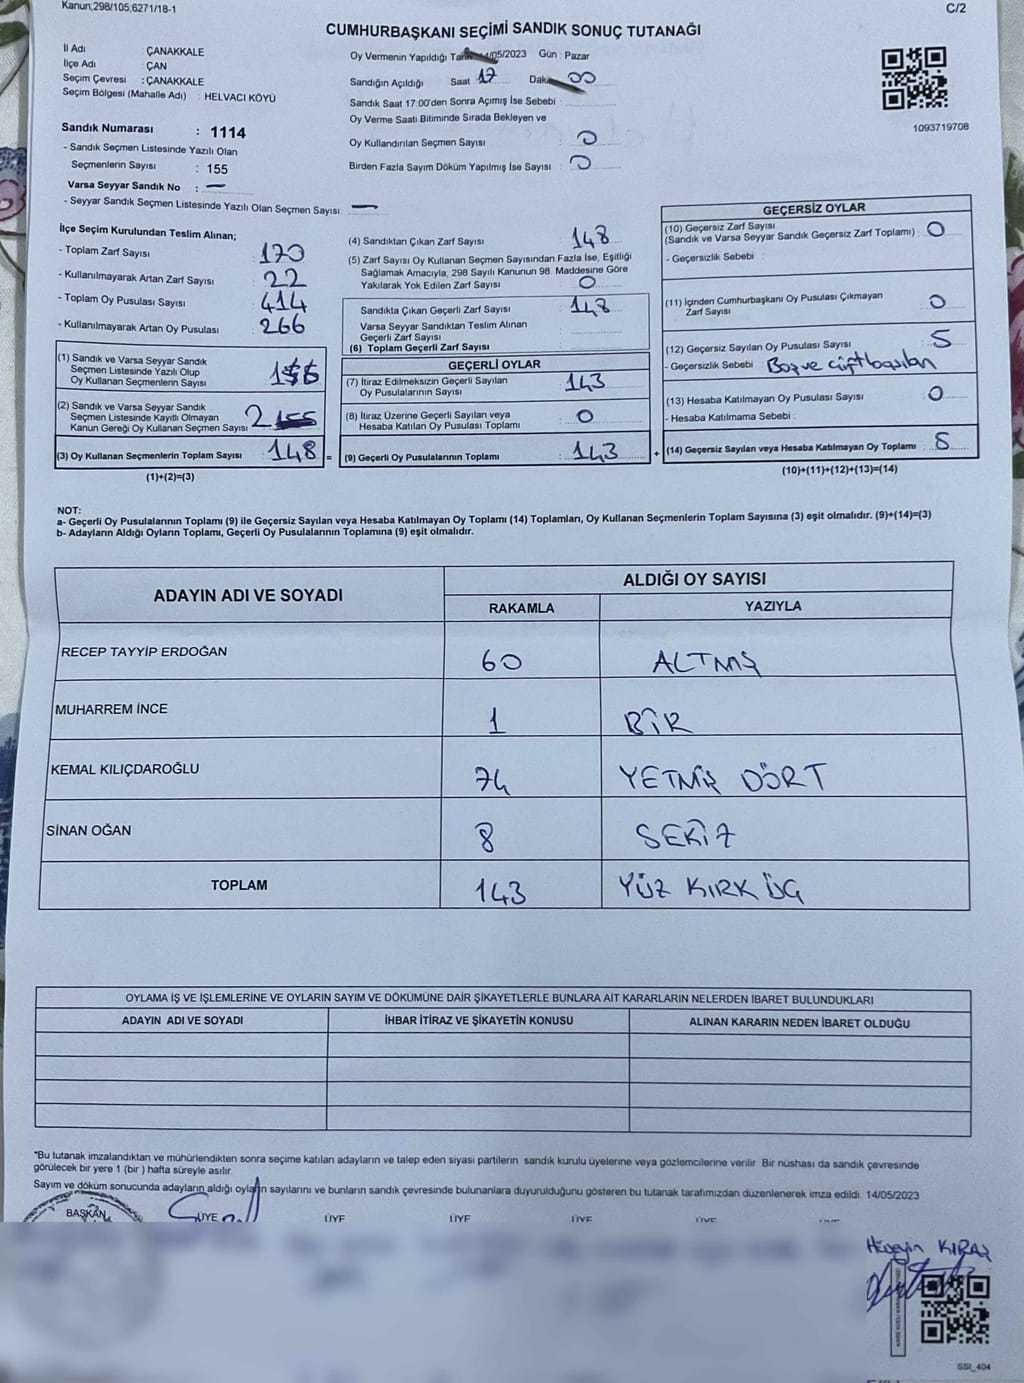 Kanun;298/105;6271/18-1
C/2
CUMHURBAŞKANI SEÇİMİ SANDIK SONUÇ TUTANAĞI
İl Adı : ÇANAKKALE
İlçe Adı : ÇAN
Seçim Çevresi : ÇANAKKALE
Seçim Bölgesi (Mahalle Adı) : HELVACI KÖYÜ
Sandık Numarası : 1114
- Sandık Seçmen Listesinde Yazılı Olan
Seçmenlerin Sayısı : 155
Varsa Seyyar Sandık No : —
- Seyyar Sandık Seçmen Listesinde Yazılı Olan Seçmen Sayısı: —
Oy Vermenin Yapıldığı /05/2023 Gün : Pazar
Sandığın Açıldığı Saat 17 00
Sandık Saat 17:00'den Sonra Açımış İse Sebebi :
Oy Verme Saati Bitiminde Sırada Bekleyen ve
Oy Kullandırılan Seçmen Sayısı : 0
Birden Fazla Sayım Döküm Yapılmış İse Sayısı : 0
1093719708
İlçe Seçim Kurulundan Teslim Alınan;
- Toplam Zarf Sayısı : 170
- Kullanılmayarak Artan Zarf Sayısı : 22
- Toplam Oy Pusulası Sayısı : 414
- Kullanılmayarak Artan Oy Pusulası : 266
(1) Sandık ve Varsa Seyyar Sandık
Seçmen Listesinde Yazılı Olup
Oy Kullanan Seçmenlerin Sayısı
(2) Sandık ve Varsa Seyyar Sandık
Seçmen Listesinde Kayıtlı Olmayan
Kanun Gereği Oy Kullanan Seçmen Sayısı : 2
(3) Oy Kullanan Seçmenlerin Toplam Sayısı : 148 =
(1)+(2)=(3)
(4) Sandıktan Çıkan Zarf Sayısı : 148
(5) Zarf Sayısı Oy Kullanan Seçmen Sayısından Fazla İse, Eşitliği
Sağlamak Amacıyla, 298 Sayılı Kanunun 98. Maddesine Göre
Yakılarak Yok Edilen Zarf Sayısı : 0
Sandıkta Çıkan Geçerli Zarf Sayısı : 148
Varsa Seyyar Sandıktan Teslim Alınan
Geçerli Zarf Sayısı
(6) Toplam Geçerli Zarf Sayısı :
GEÇERLİ OYLAR
(7) İtiraz Edilmeksizin Geçerli Sayılan
Oy Pusulalarının Sayısı : 143
(8) İtiraz Üzerine Geçerli Sayılan veya
Hesaba Katılan Oy Pusulası Toplamı : 0
(9) Geçerli Oy Pusulalarının Toplamı : 143 +
GEÇERSİZ OYLAR
(10) Geçersiz Zarf Sayısı
(Sandık ve Varsa Seyyar Sandık Geçersiz Zarf Toplamı) : 0
- Geçersizlik Sebebi :
(11) İçinden Cumhurbaşkanı Oy Pusulası Çıkmayan
Zarf Sayısı : 0
(12) Geçersiz Sayılan Oy Pusulası Sayısı : 5
- Geçersizlik Sebebi : Boş ve çift basılan
(13) Hesaba Katılmayan Oy Pusulası Sayısı : 0
- Hesaba Katılmama Sebebi :
(14) Geçersiz Sayılan veya Hesaba Katılmayan Oy Toplamı : 5
(10)+(11)+(12)+(13)=(14)
NOT:
a- Geçerli Oy Pusulalarının Toplamı (9) ile Geçersiz Sayılan veya Hesaba Katılmayan Oy Toplamı (14) Toplamları, Oy Kullanan Seçmenlerin Toplam Sayısına (3) eşit olmalıdır. (9)+(14)=(3)
b- Adayların Aldığı Oyların Toplamı, Geçerli Oy Pusulalarının Toplamına (9) eşit olmalıdır.
ADAYIN ADI VE SOYADI
ALDIĞI OY SAYISI
RAKAMLA YAZIYLA
RECEP TAYYİP ERDOĞAN 60 ALTMIŞ
MUHARREM İNCE 1 BİR
KEMAL KILIÇDAROĞLU 74 YETMİŞ DÖRT
SİNAN OĞAN 8 SEKİZ
TOPLAM 143 YÜZ KIRK ÜÇ
OYLAMA İŞ VE İŞLEMLERİNE VE OYLARIN SAYIM VE DÖKÜMÜNE DAİR ŞİKAYETLERLE BUNLARA AİT KARARLARIN NELERDEN İBARET BULUNDUKLARI
ADAYIN ADI VE SOYADI İHBAR İTİRAZ VE ŞİKAYETİN KONUSU ALINAN KARARIN NEDEN İBARET OLDUĞU
*Bu tutanak imzalandıktan ve mühürlendikten sonra seçime katılan adayların ve talep eden siyasi partilerin sandık kurulu üyelerine veya gözlemcilerine verilir. Bir nüshası da sandık çevresinde
görülecek bir yere 1 (bir ) hafta süreyle asılır.
Sayım ve döküm sonucunda adayların aldığı oyların sayılarını ve bunların sandık çevresinde bulunanlara duyurulduğunu gösteren bu tutanak tarafımızdan düzenlenerek imza edildi. 14/05/2023
BAŞKAN ÜYE ÜYE ÜYE ÜYE ÜYE
Hüseyin KIRAŞ
SSI_404